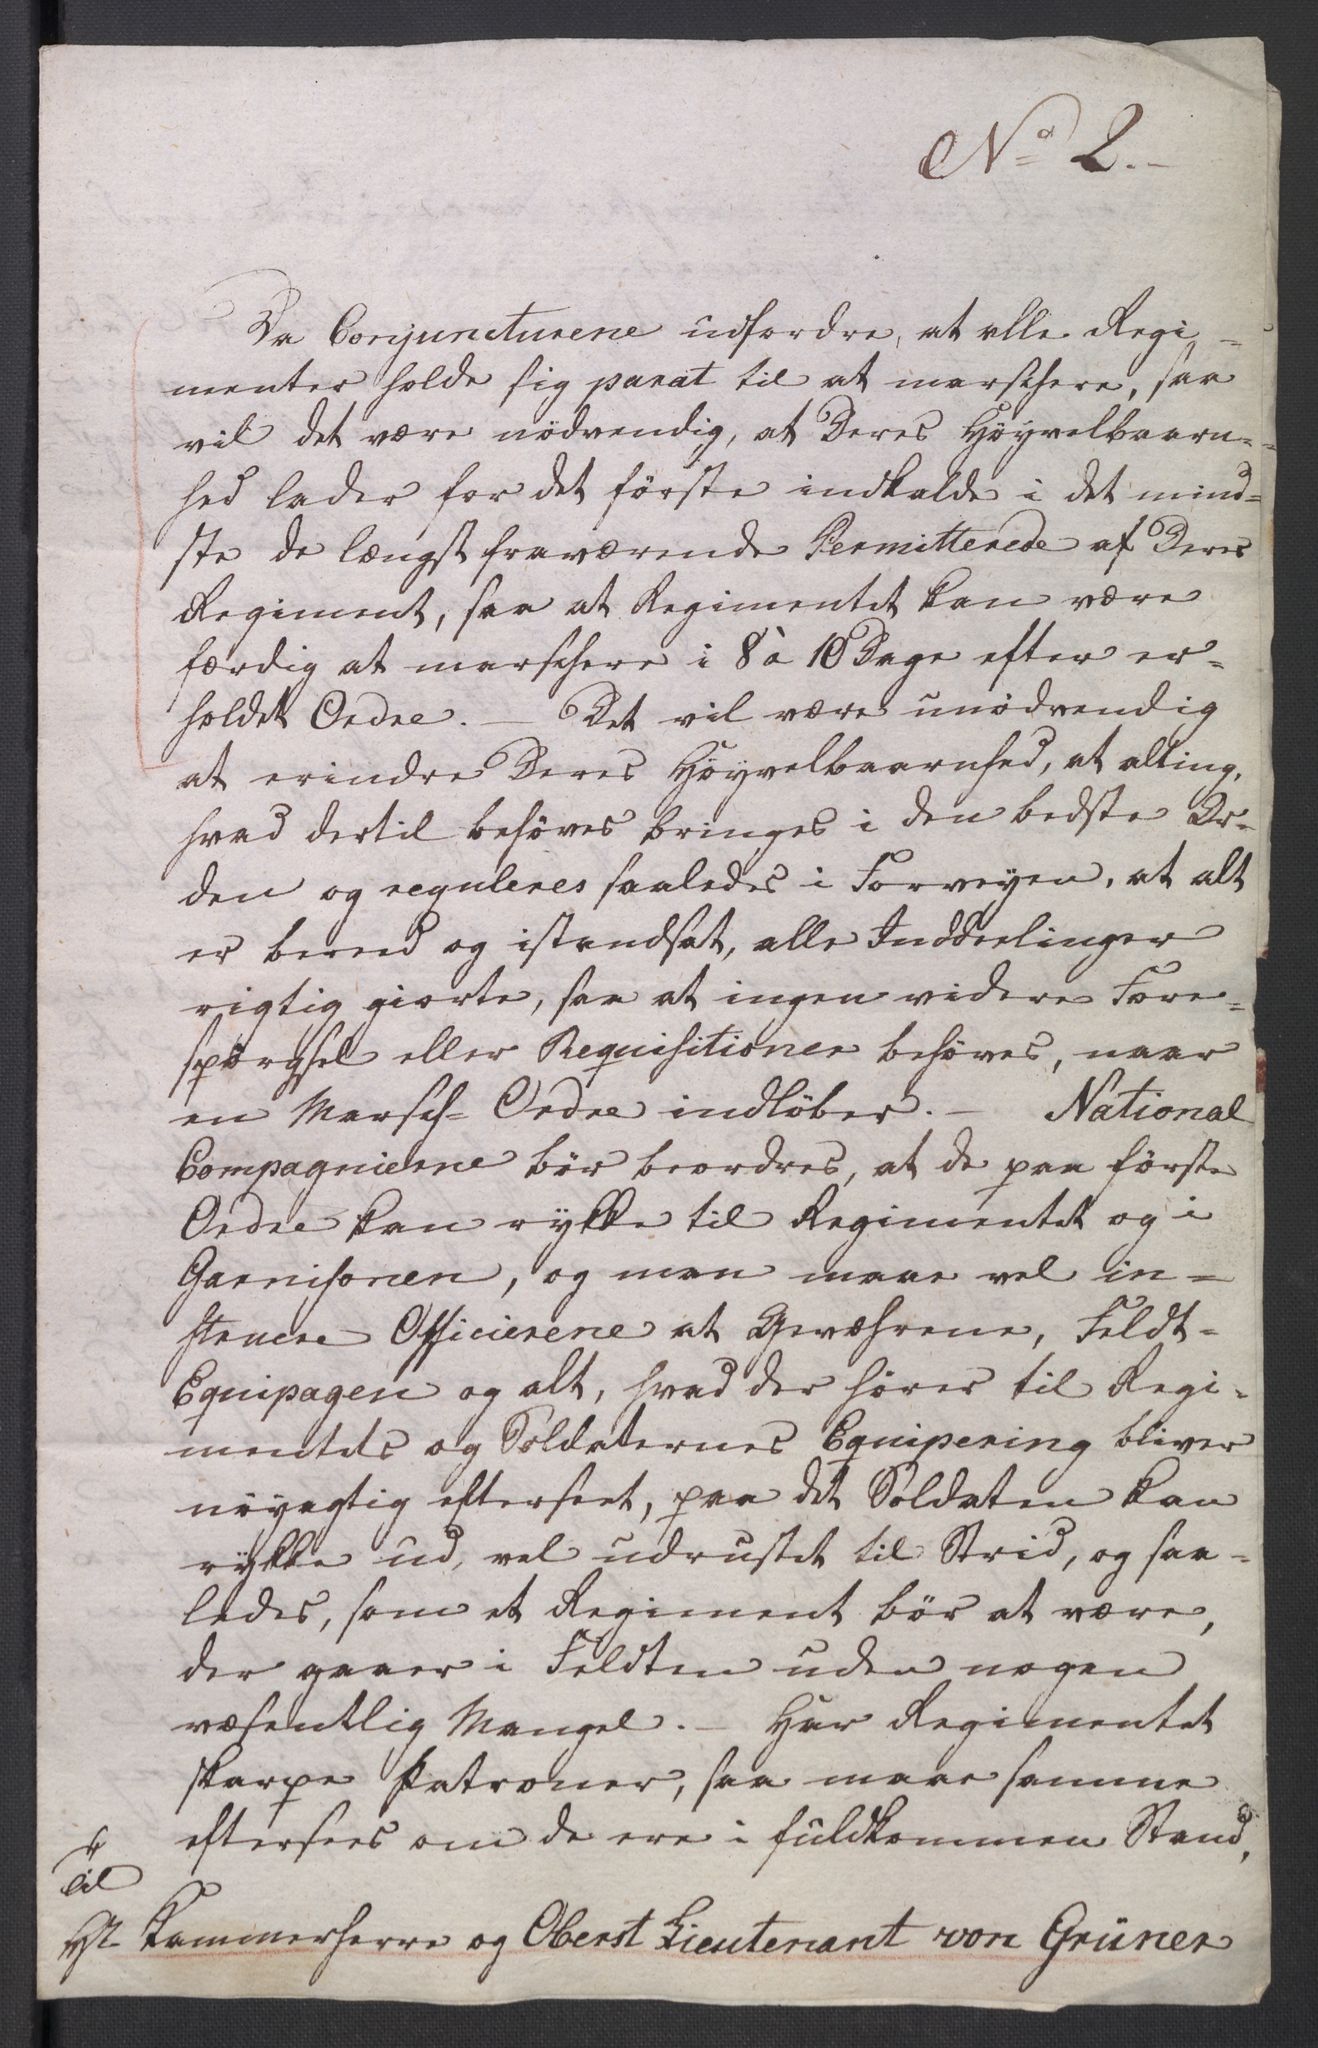 No 2.-
Da Conjuncturene udfordre, at alle Regi-
menter holde sig parat til at marschere, saa
vil det være nødvendig, at Deres Höyvelbaarn-
hed lader for det første indkalde i det mind-
ste de længst fraværende Permitterede af Deres
Regiment, saa at Regimentet kan være
færdig at marschere i 8 à 10 Dage efter er-
holdet Ordre. - Det vil være unödvendig
at erindre Deres Höyvelbaarnhed, at alting,
hvad dertil behöves bringes i den bedste Or-
den og reguleres saaledes i Forveyen, at alt
er bereed og istandsat, alle Inddeelinger
rigtig giorte, saa at ingen videre Fore-
spørgsel eller Requisitioner behöves, naar
en Marsch-Ordre indlöber. - National
Compagnierne bör beordres, at de paa förste
Ordre kan rykke til Regimentet og i
Garnisonen, og man maae vel in-
struere Officierene at Gewæhrene, Feldt-
Equipagen og alt, hvad der hörer til Regi-
mentets og Soldaternes Equipering bliver
nöyagtig efterseet, paa det Soldaten kan
rykke ud, vel udrustet til Strid, og saa-
ledes, som et Regiment bör at være,
der gaaer i Feldten uden nogen
væsentlig Mangel. - Har Regimentet
skarpe Patroner, saa maae samme
eftersees om de ere i fuldkommen Stand,
Til
Hr Kammerherre og Oberst Lieutenant von Grüner